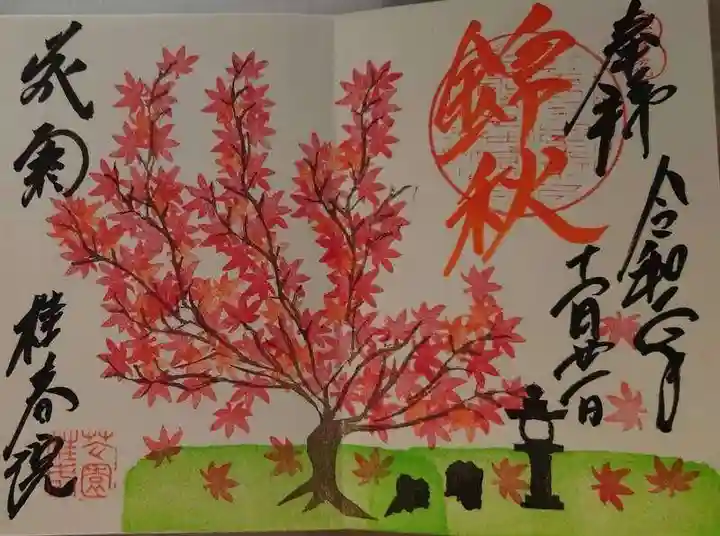 奉拝
令和二年
十一月廿一日
錦秋
花園
桂春院